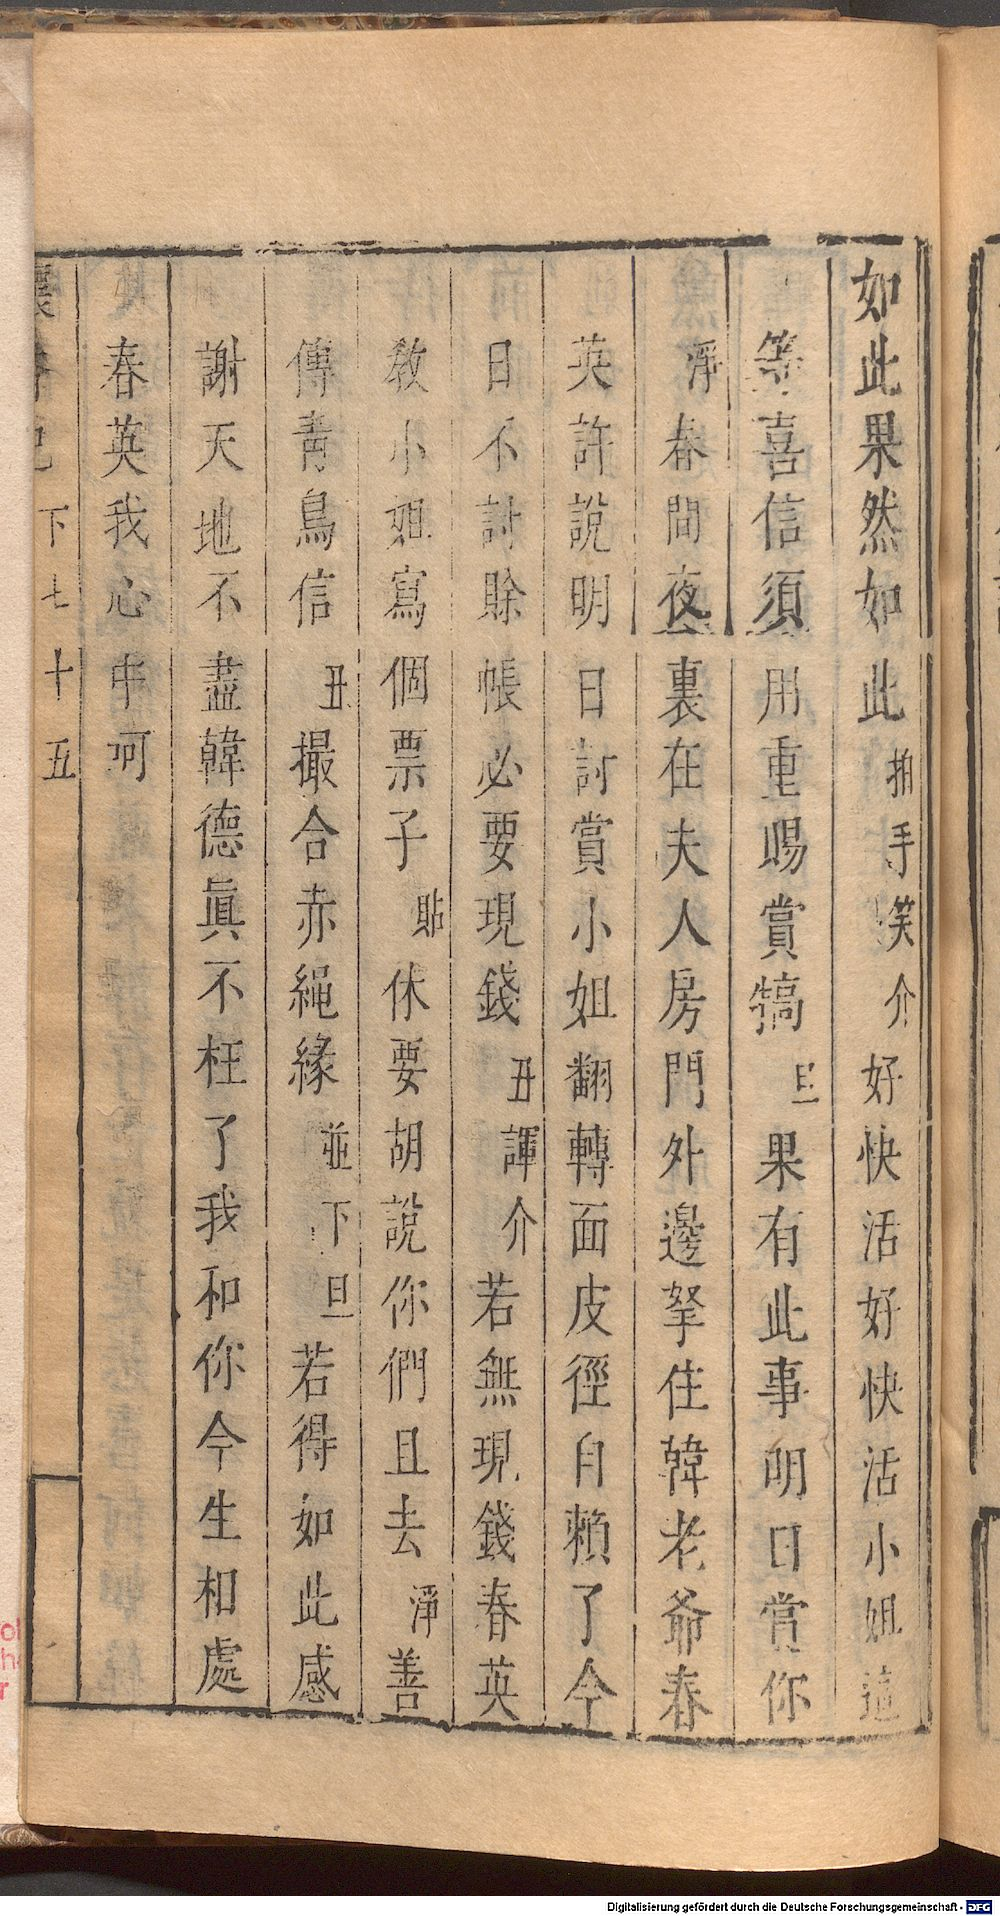 如此果然如此拍手笑介好快活好快活小姐這
等喜信須用重賜賞犒旦果有此事明日賞你
淨春間夜裏在夫人房門外邊拏住韓老爺春
英許說明日討賞小姐翻轉面皮徑自賴了今
日不討賒帳必要現錢丑諢介若無現錢春英
敎小姐寫個票子貼休要胡說你們且去淨善
傳青鳥信丑撮合赤繩緣並下旦若得如此感
謝天地不盡韓德眞不枉了我和你今生相處
春英我心中呵
懷香記下七十五
Digitalisierung gefördert durch die Deutsche Forschungsgemeinschaft - DFG